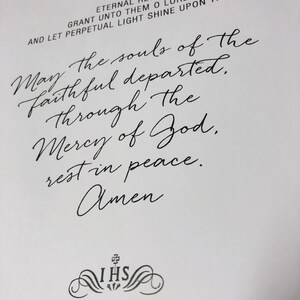 ETERNAL RE
GRANT UNTO THEM O LOR
AND LET PERPETUAL LIGHT SHINE UPON T
May the souls of the
faithful departed,
through the
Mercy of God,
rest in peace.
Amen
IHS